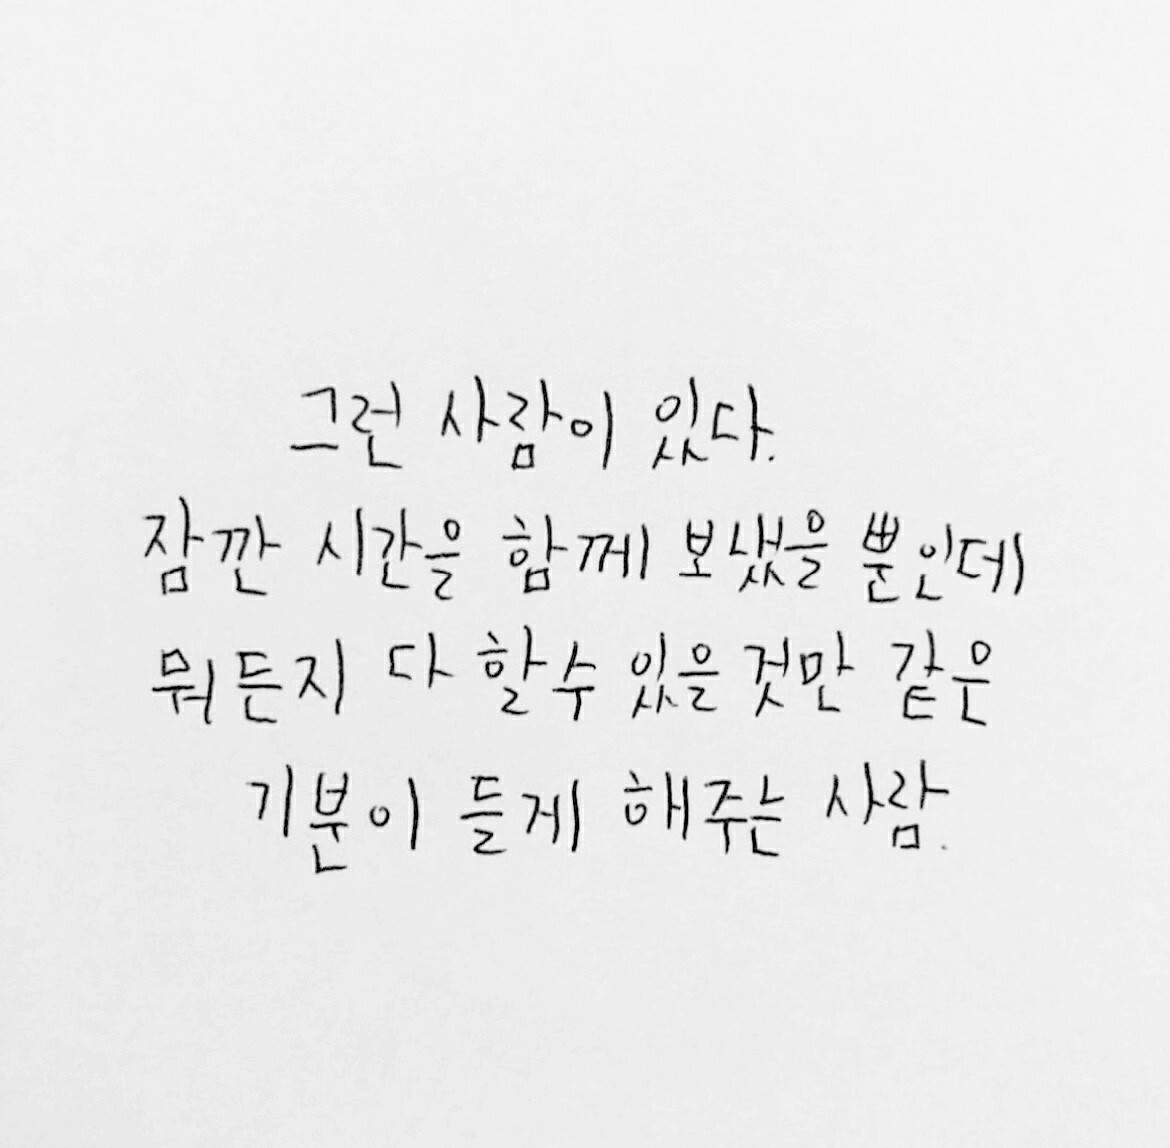 그런 사람이 있다.
잠깐 시간을 함께 보냈을 뿐인데
뭐든지 다 할수 있을 것만 같은
기분이 들게 해주는 사람.